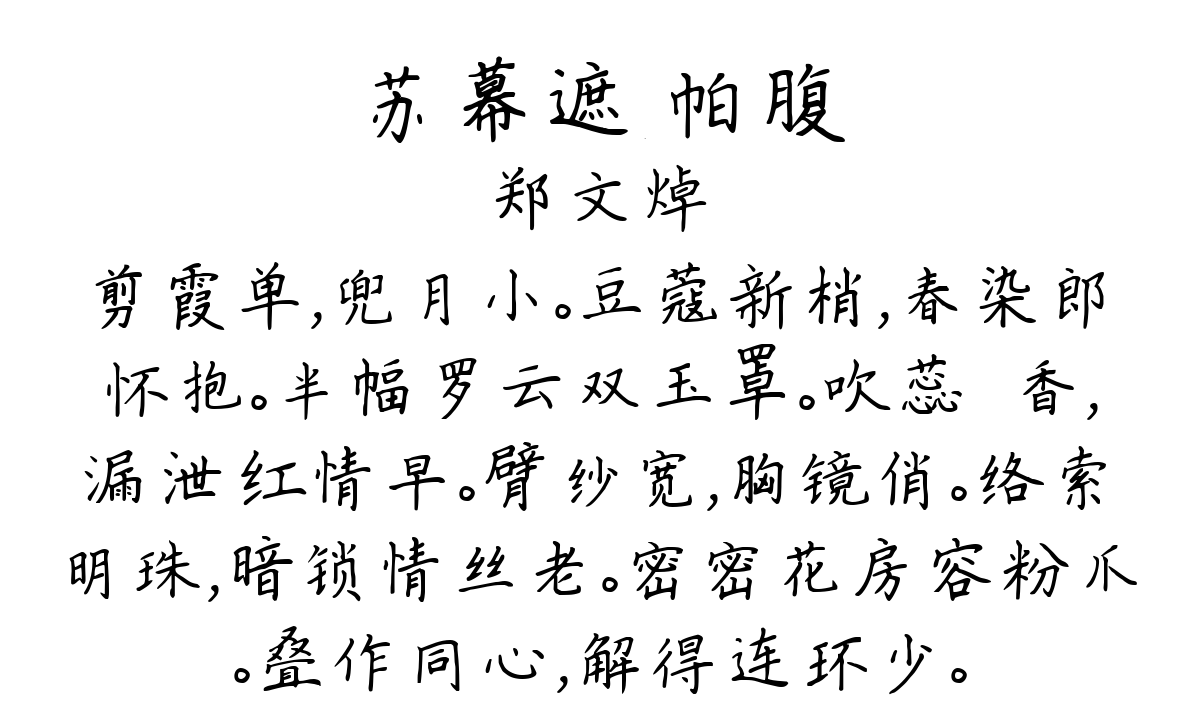 苏幕遮 帕腹
郑文焯
剪霞单,兜月小。豆蔻新梢,春染郎
怀抱。半幅罗云双玉罩。吹蕊 香,
漏泄红情早。臂纱宽,胸镜俏。络索
明珠,暗锁情丝老。密密花房容粉爪
。叠作同心,解得连环少。